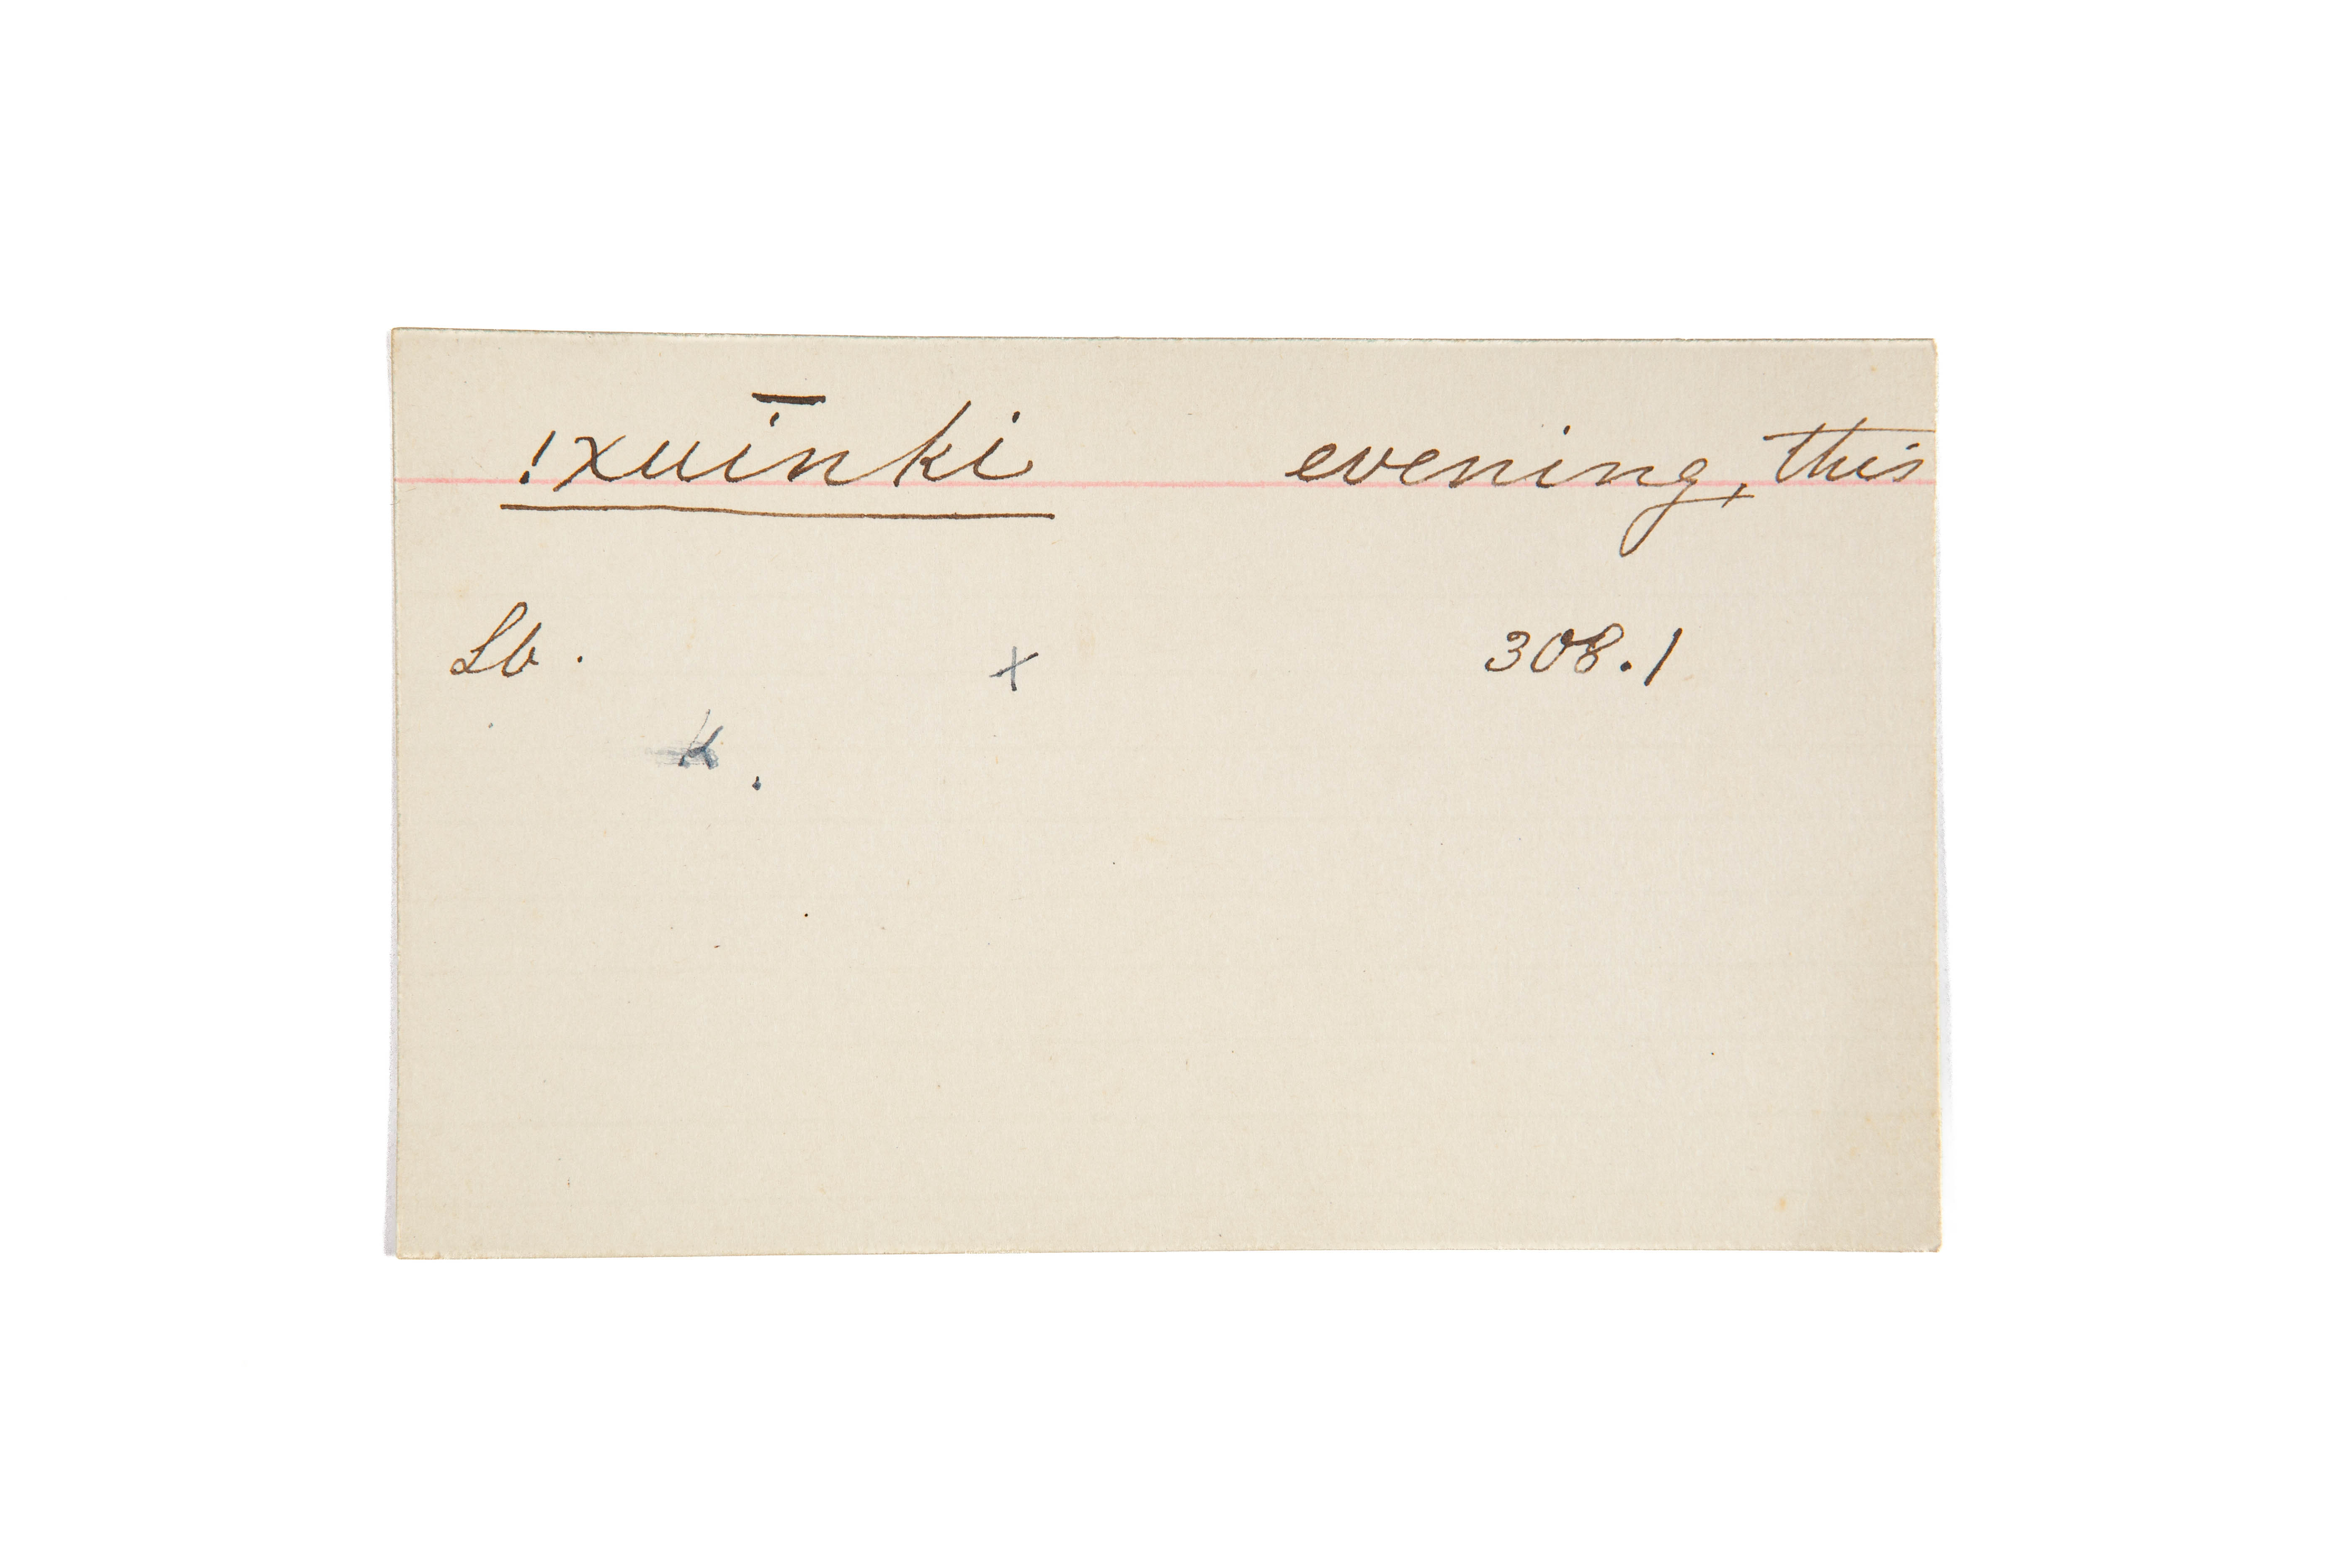 !xui̅nki evening, this
Lb. x 308.1